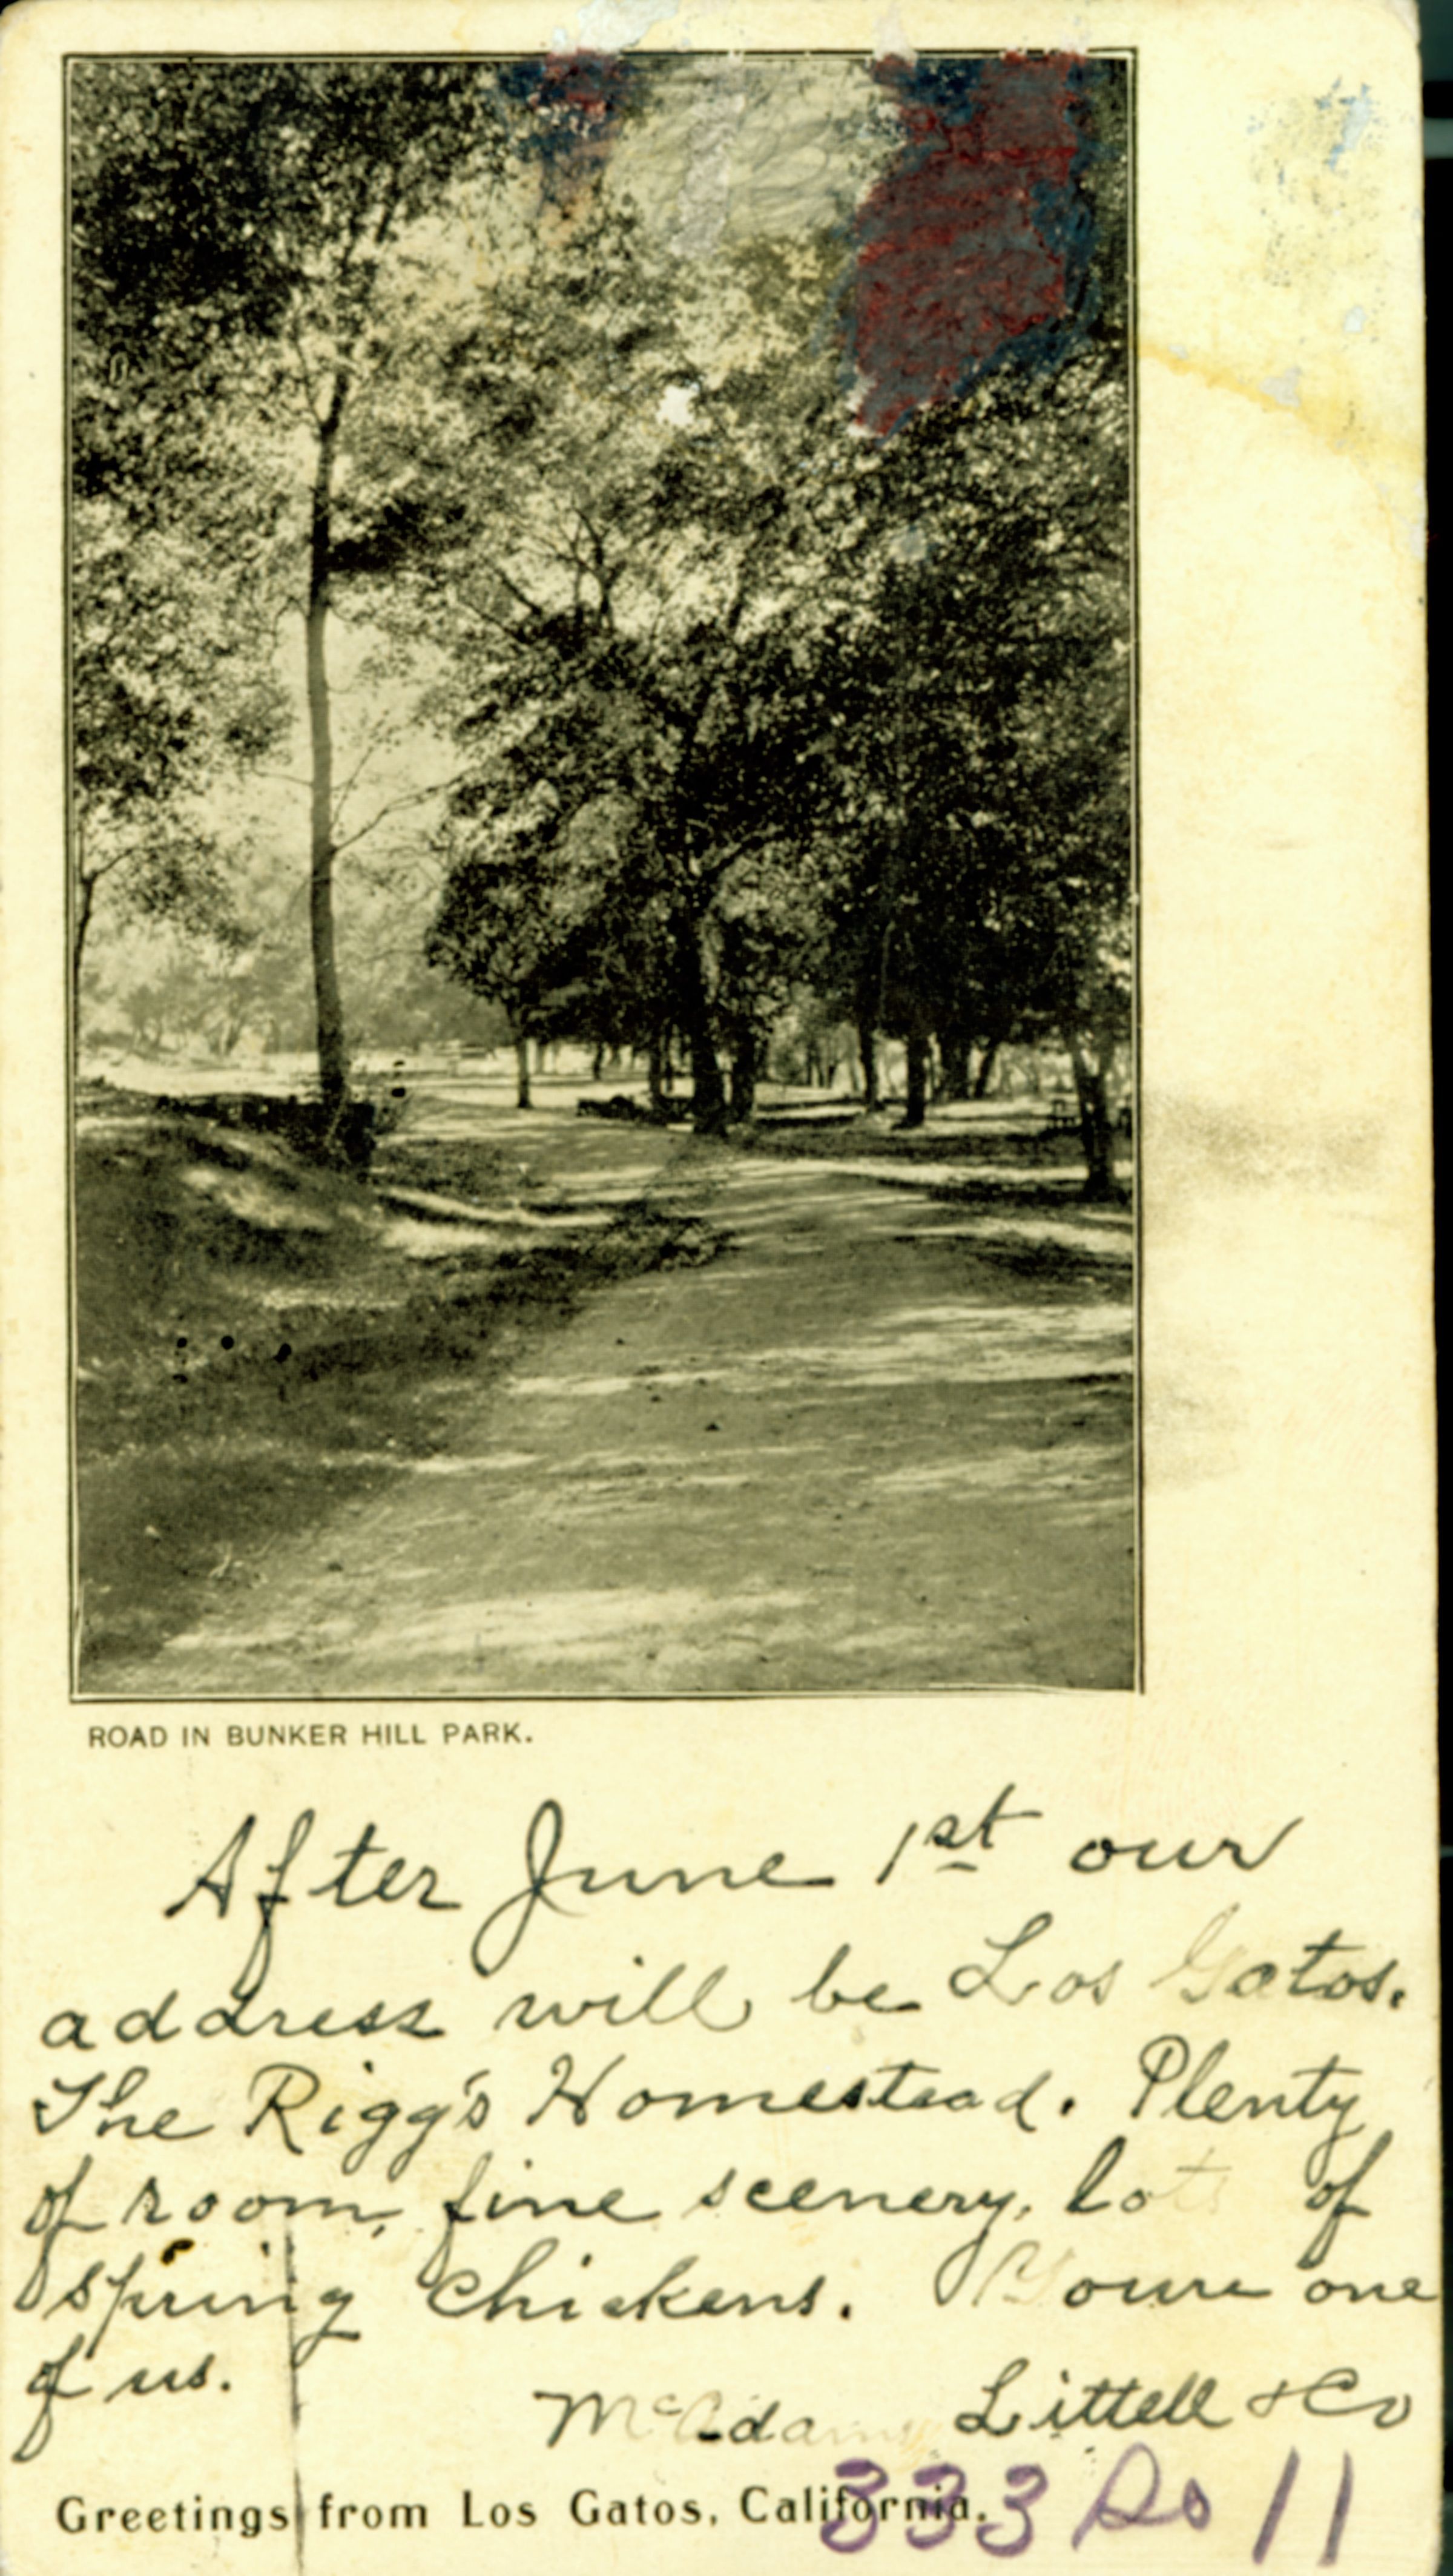 ROAD IN BUNKER HILL PARK.
After June 1st our
address will be Los Gatos.
The Rigg's Homestead. Plenty
of room, fine scenery, lots of
spring chickens. Youre one
of us.
McAdams Littell & Co
Greetings from Los Gatos, California.
333 So 11